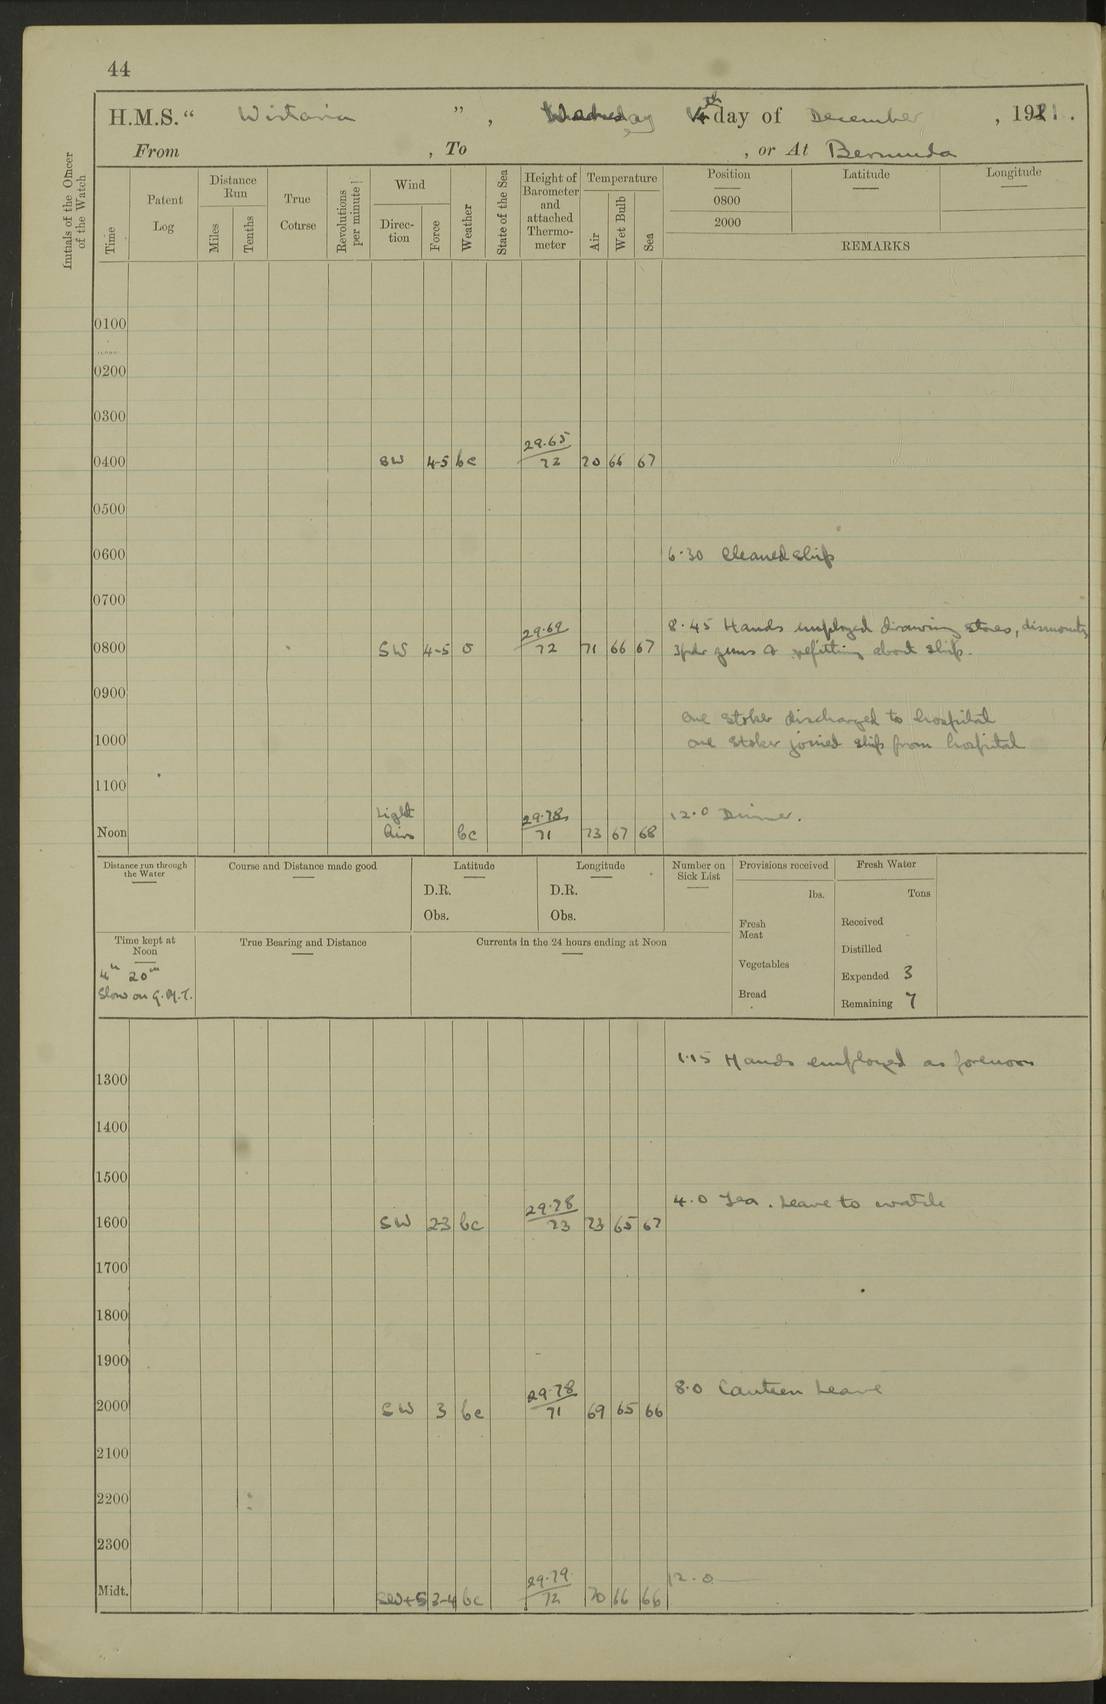 44
H.M.S. “ Wistaria ” , Wednesday 14th day of December , 1921.
From , To , or At Bermuda
Initials of the Officer of the Watch
Time
Patent Log
Distance Run
Miles
Tenths
True Course
Revolutions per minute
Wind
Direction
Force
Weather
State of the Sea
Height of Barometer and attached Thermometer
Temperature
Air
Wet Bulb
Sea
Position Latitude Longitude
0800
2000
REMARKS
0100
0200
0300
0400 SW 4-5 bc 29.65 72 70 66 67
0500
0600 6.30 Cleaned ship
0700
8.45 Hands employed drawing stores, dismounting
0800 SW 4-5 o 29.69 72 71 66 67 3pdr guns & refitting about ship.
0900
One stoker discharged to hospital
1000 one stoker joined ship from hospital
1100
Noon Light Airs bc 29.78 71 73 67 68 12.0 Dinner.
Distance run through the Water
Course and Distance made good
Latitude
D.R.
Obs.
Longitude
D.R.
Obs.
Number on Sick List
Provisions received
lbs.
Fresh Meat
Vegetables
Bread
Fresh Water
Tons
Received
Distilled
Expended 3
Remaining 7
Time kept at Noon
4h 20m
Slow on G.M.T.
True Bearing and Distance
Currents in the 24 hours ending at Noon
1.15 Hands employed as forenoon
1300
1400
1500
4.0 Tea. Leave to watch
1600 SW 2-3 bc 29.78 73 73 65 67
1700
1800
1900
8.0 Canteen Leave
2000 SW 3 bc 29.78 71 69 65 66
2100
2200
2300
12.0
Midt. 3-4 bc 29.79 72 70 66 66